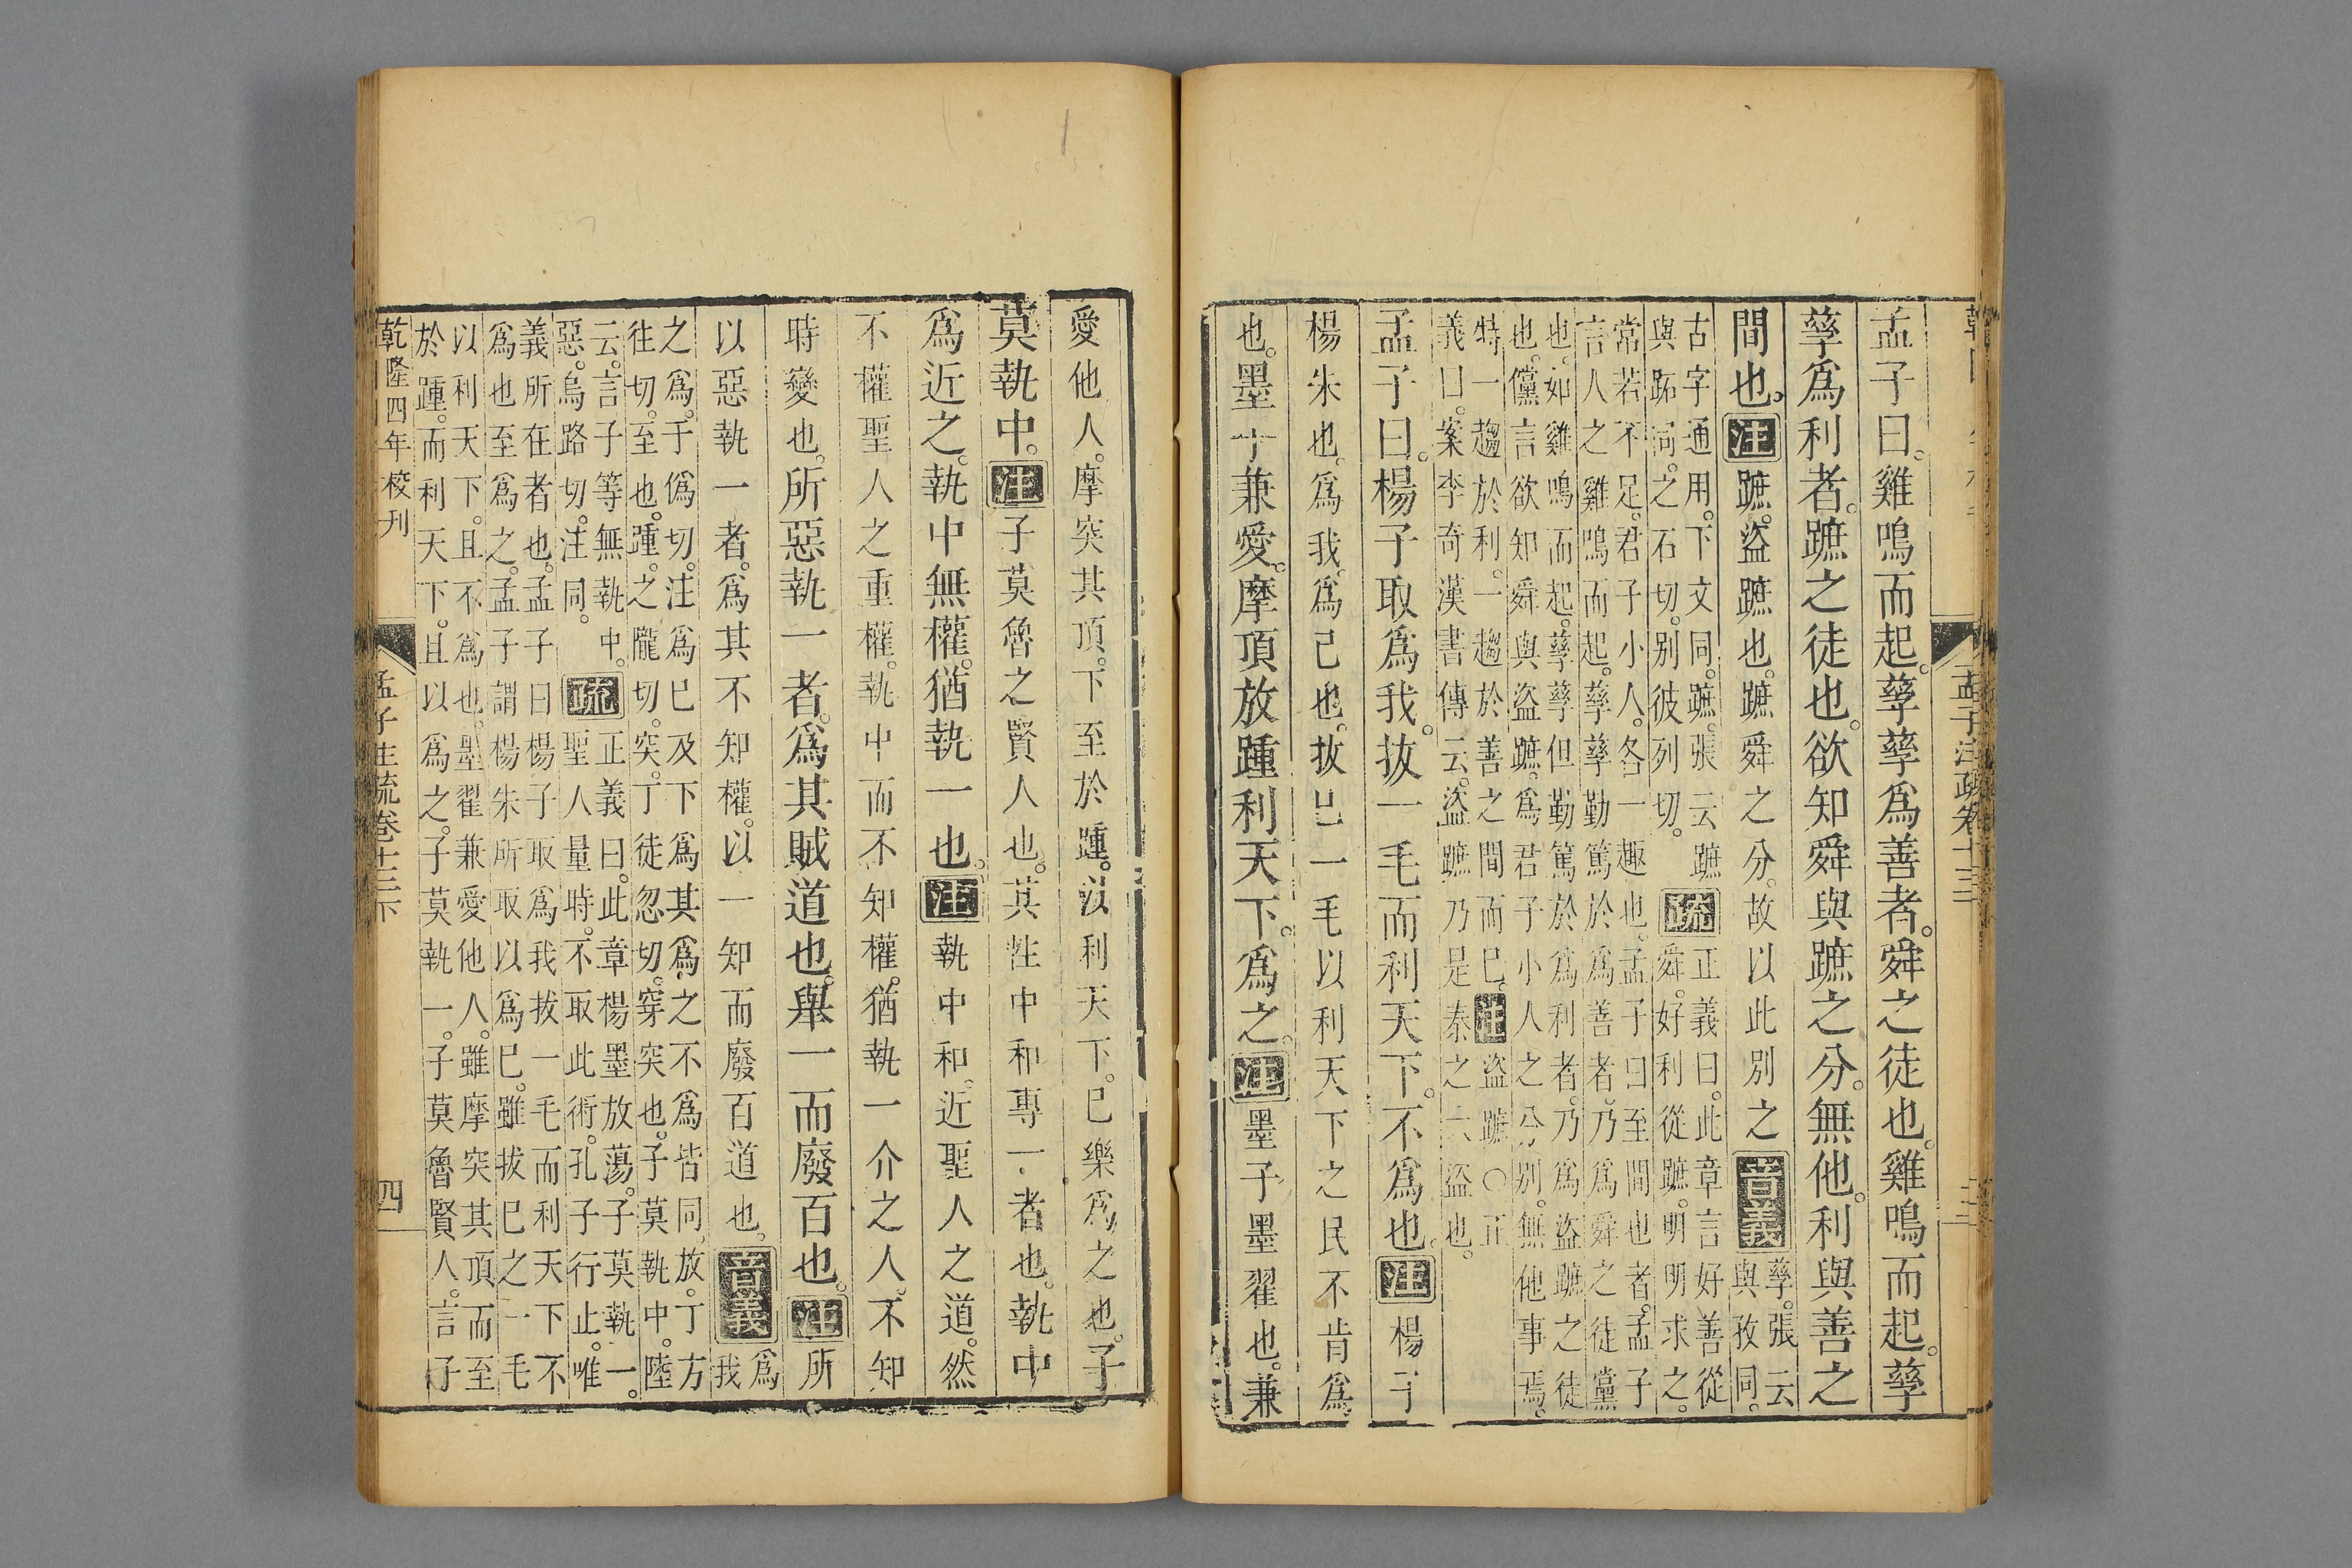 孟子注疏卷十三
孟子曰。雞鳴而起。孳孳爲善者。舜之徒也。雞鳴而起。孳
孳爲利者。蹠之徒也。欲知舜與蹠之分。無他。利與善之
間也。注蹠。盜蹠也。蹠舜之分。故以此別之音義孳。張云
與孜同。
古字通用。下文同。蹠。張云蹠
與跖同。之石切。别彼列切。疏正義曰。此章言好善從
舜。好利從蹠。明明求之。
常若不足。君子小人。各一趣也。孟子曰至間也者。孟子
言人之雞鳴而起。孳孳勤篤於爲善者。乃爲舜之徒黨
也。如雞鳴而起。孳孳但勤篤於爲利者。乃爲盜蹠之徒
也。儻言欲知舜與盜蹠。爲君子小人之分别。無他事焉。
特一趨於利。一趨於善之間而已。注盜蹠○正
義曰。案李奇漢書傳云。盜蹠乃是秦之大盜也。
孟子曰。楊子取爲我。拔一毛而利天下。不爲也。注楊子
楊朱也。爲我。爲己也。拔己一毛以利天下之民不肯爲
也。墨子兼愛。摩頂放踵利天下。爲之。注墨子墨翟也。兼
愛他人。摩突其頂。下至於踵。以利天下。己樂爲之也。子
莫執中。注子莫魯之賢人也。其性中和專一者也。執中
爲近之。執中無權。猶執一也。注執中和。近聖人之道。然
不權聖人之重權。執中而不知權。猶執一介之人。不知
時變也。所惡執一者。爲其賊道也。舉一而廢百也。注所
以惡執一者。爲其不知權。以一知而廢百道也。音義爲
我
之爲。于僞切。注爲已及下爲其爲之不爲皆同。放。丁方
往切。至也。踵。之隴切。突。丁徒忽切。穿突也。子莫執中。陸
云。言子等無執中。
惡。烏路切。注同。疏正義曰。此章楊墨放蕩。子莫執一。
聖人量時。不取此術。孔子行止。唯
義所在者也。孟子曰楊子取爲我拔一毛而利天下不
爲也至爲之。孟子謂楊朱所取以爲已。雖拔已之一毛
以利天下。且不爲也。墨翟兼愛他人。雖摩突其頂而至
於踵。而利天下。且以爲之。子莫執一。子莫魯賢人。言子
乾隆四年校刊
孟子注疏卷十三下
四